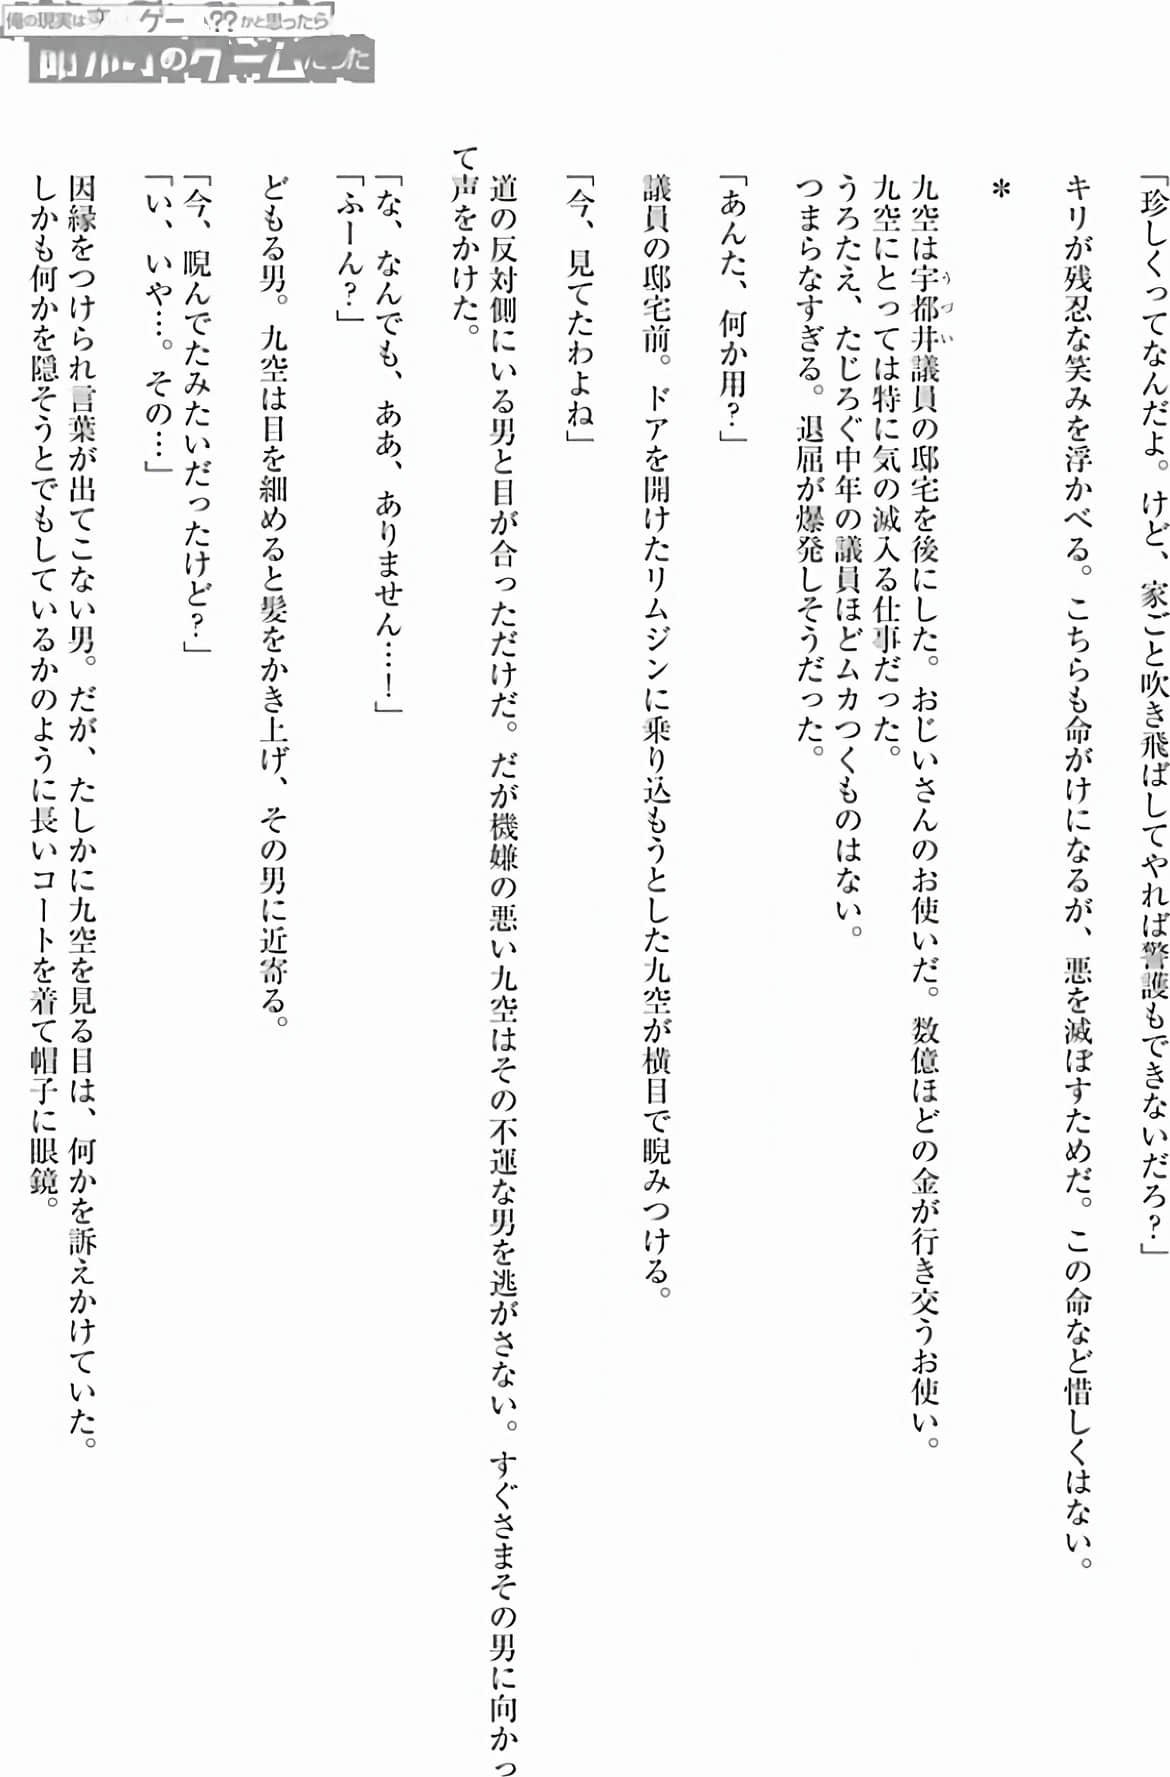 俺の現実は
ゲー
??かと思ったら
のゲームだった
「珍しくってなんだよ。けど、家ごと吹き飛ばしてやれば警護もできないだろ?」
キリが残忍な笑みを浮かべる。こちらも命がけになるが、悪を滅ぼすためだ。この命など惜しくはない。
*
九空は宇都井議員の邸宅を後にした。おじいさんのお使いだ。数億ほどの金が行き交うお使い。
うづい
九空にとっては特に気の滅入る仕事だった。
うろたえ、たじろぐ中年の議員ほどムカつくものはない。
つまらなすぎる。退屈が爆発しそうだった。
「あんた、何か用?」
議員の邸宅前。ドアを開けたリムジンに乗り込もうとした九空が横目で睨みつける。
「今、見てたわよね」
道の反対側にいる男と目が合っただけだ。だが機嫌の悪い九空はその不運な男を逃がさない。すぐさまその男に向かっ
て声をかけた。
「な、なんでも、ああ、ありません…!」
「ふーん?」
どもる男。九空は目を細めると髪をかき上げ、その男に近寄る。
「今、睨んでたみたいだったけど?」
「い、いや…。その…」
因縁をつけられ言葉が出てこない男。だが、たしかに九空を見る目は、何かを訴えかけていた。
しかも何かを隠そうとでもしているかのように長いコートを着て帽子に眼鏡。